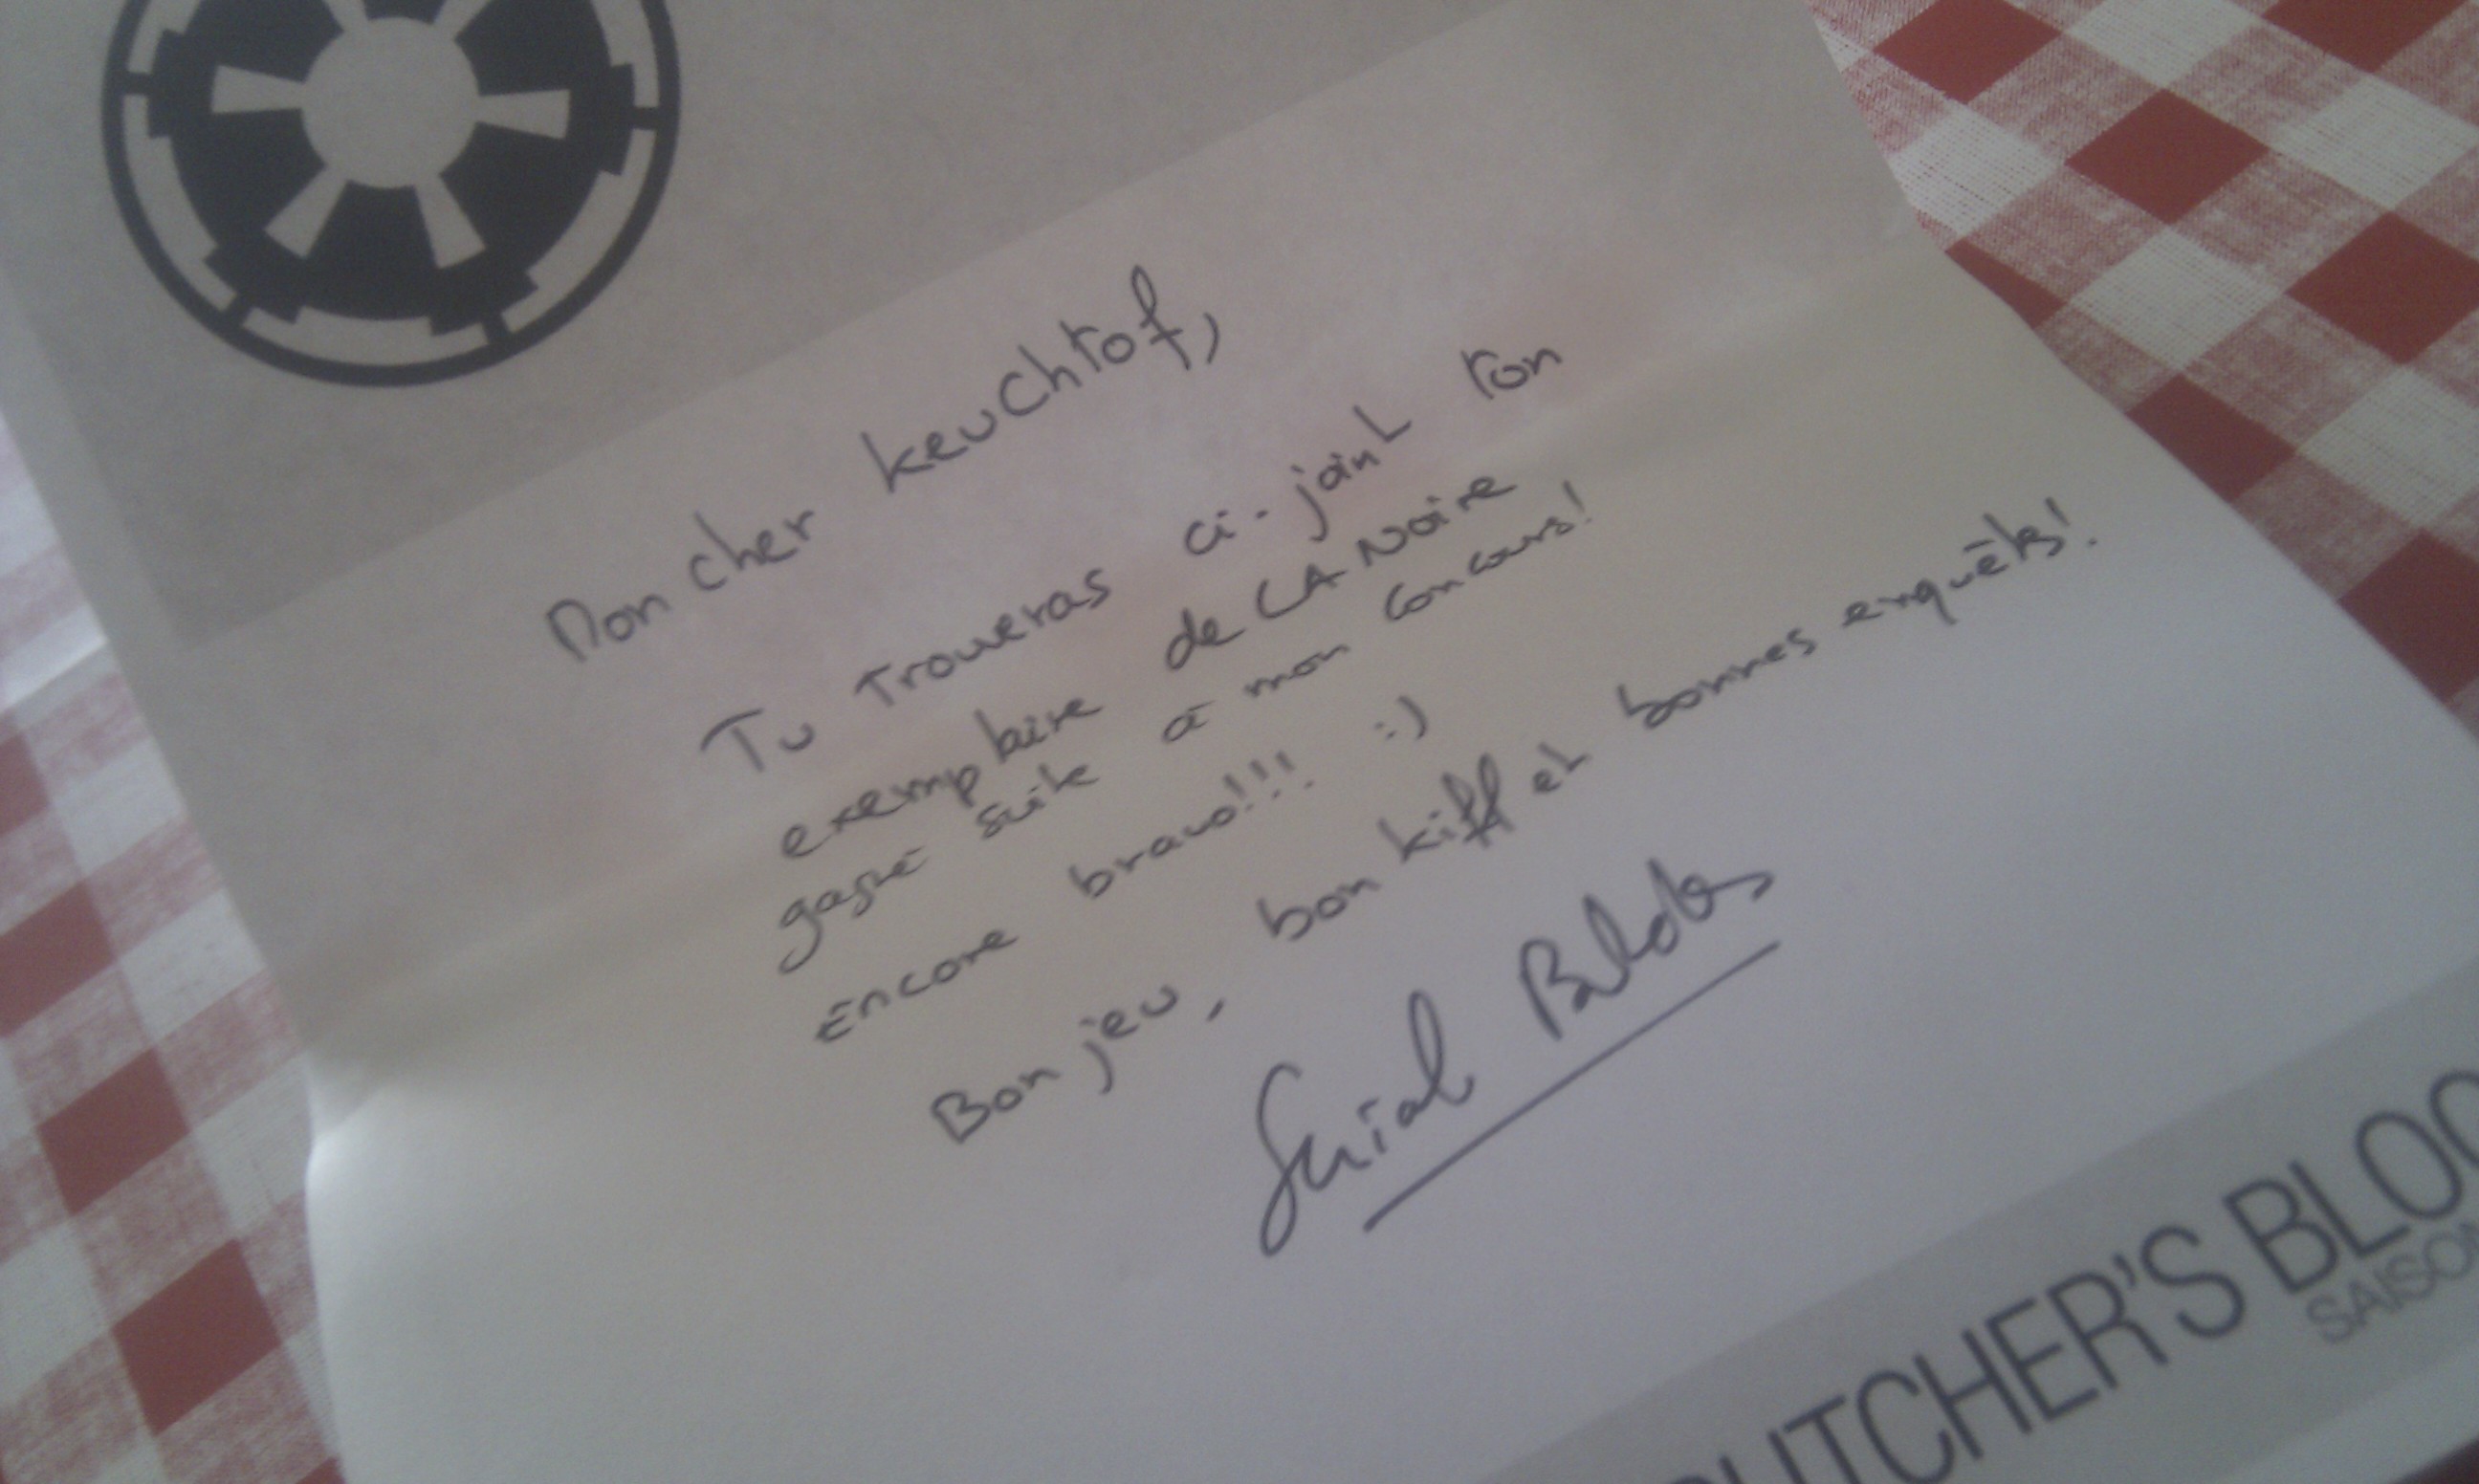 Mon cher keuchtof,
Tu trouveras ci-joint ton
exemplaire de LA Noire
gagné suite à mon concours!
Encore bravo!!! :)
Bon jeu, bon kiff et bonnes enquêtes!
Serial
UTCHER'S BLOG
SAISON